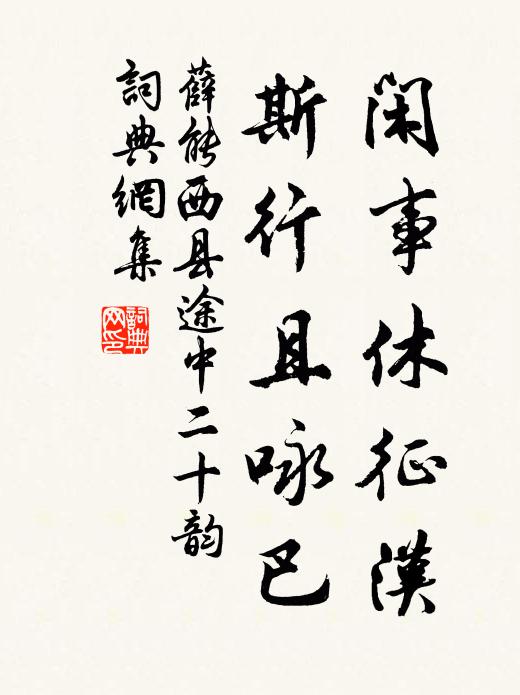 闲事休征汉
斯行且咏巴
薛能西县途中二十韵
词典網集
詞典網印